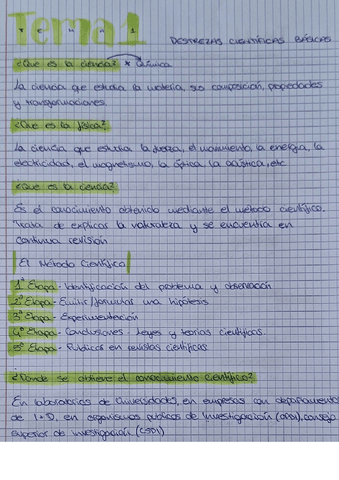 Tema 1
TEMA 1
DESTREZAS CIENTÍFICAS BÁSICAS
¿Que es la ciencia? * Química
La ciencia que estudia la materia, su composición, propiedades
y transformaciones
¿Que es la física?
La ciencia que estudia la fuerza, el movimiento, la energía, la
electricidad, el magnetismo, la óptica, la acústica, etc
¿Que es la ciencia?
Es el conocimiento obtenido mediante el método científico.
Trata de explicar la naturaleza y se encuentra en
continua revisión
El Método Científico
1ª Etapa - Identificación del problema y observación
2ª Etapa - Emitir/formular una hipótesis
3ª Etapa - Experimentación
4ª Etapa - Conclusiones. Leyes y teorías científicas.
5ª Etapa - Publicas en revistas científicas
¿Donde se obtiene el conocimiento científico?
En laboratorios de Universidades, en empresas con departamento
de I+D, en organismos publicos de investigación (OPI), consejo
superior de investigación (CSIC)